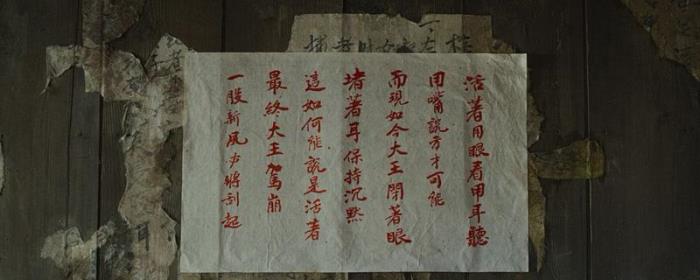 活著用眼看用耳聽
用嘴說方才可能
而現如今大王閉著眼
堵著耳保持沉默
這如何能說是活者
最終大王駕崩
一股新風才將刮起